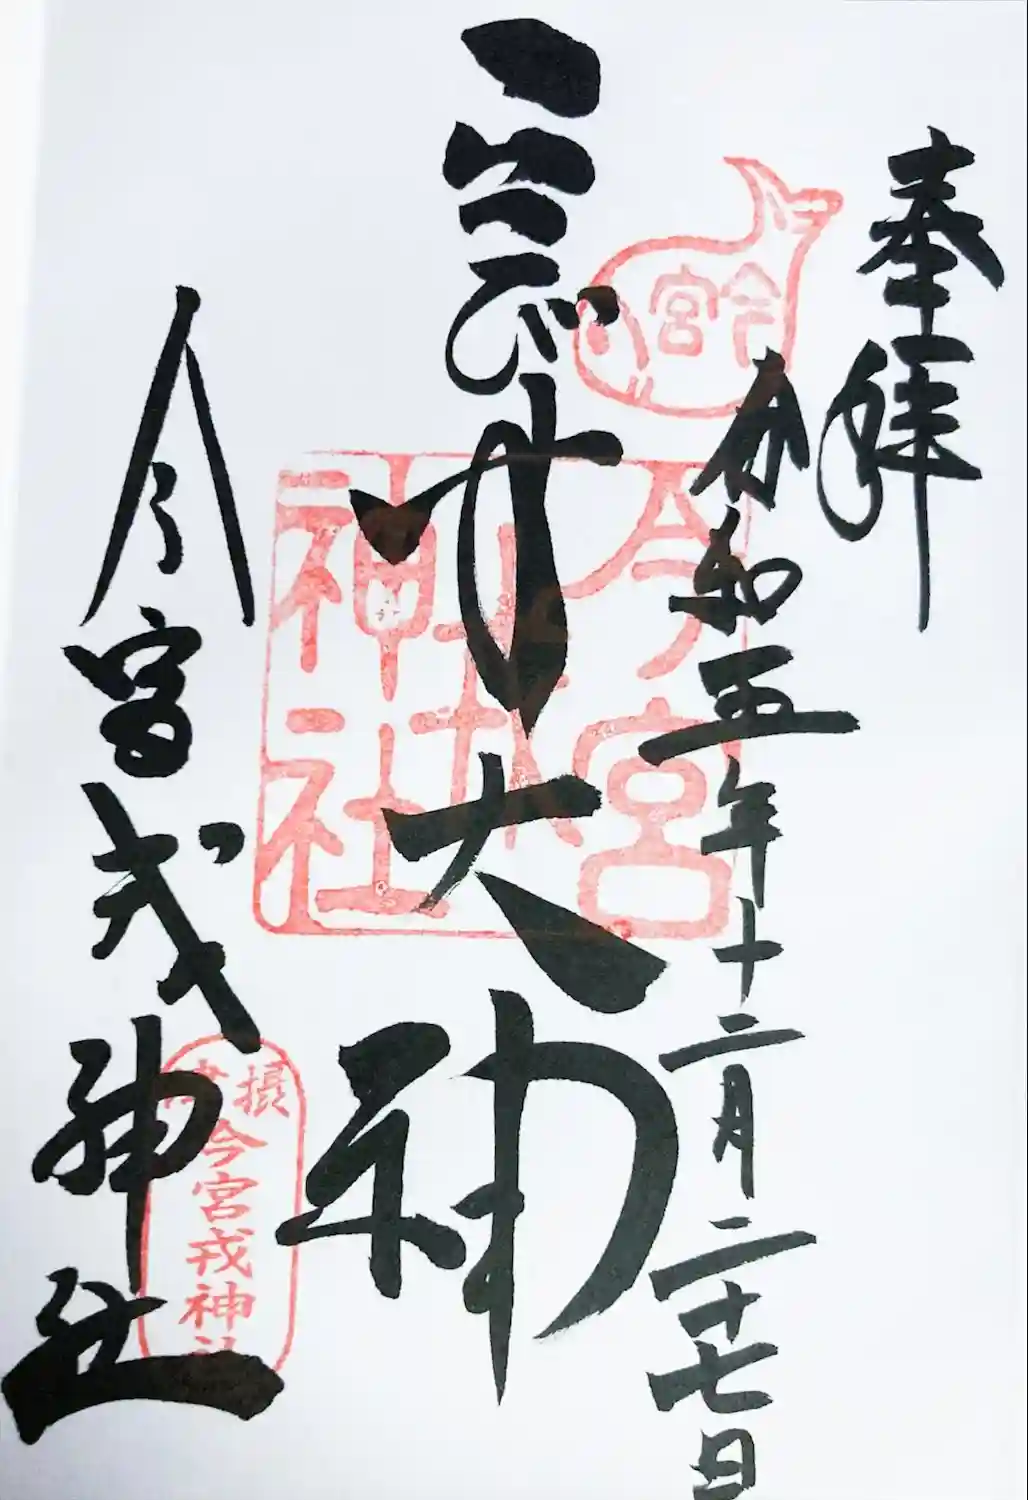 奉拝
令和五年十二月二十七日
今宮
ゑびす大神
今宮
戎
神社
今宮戎神社
摂津
今宮戎神社